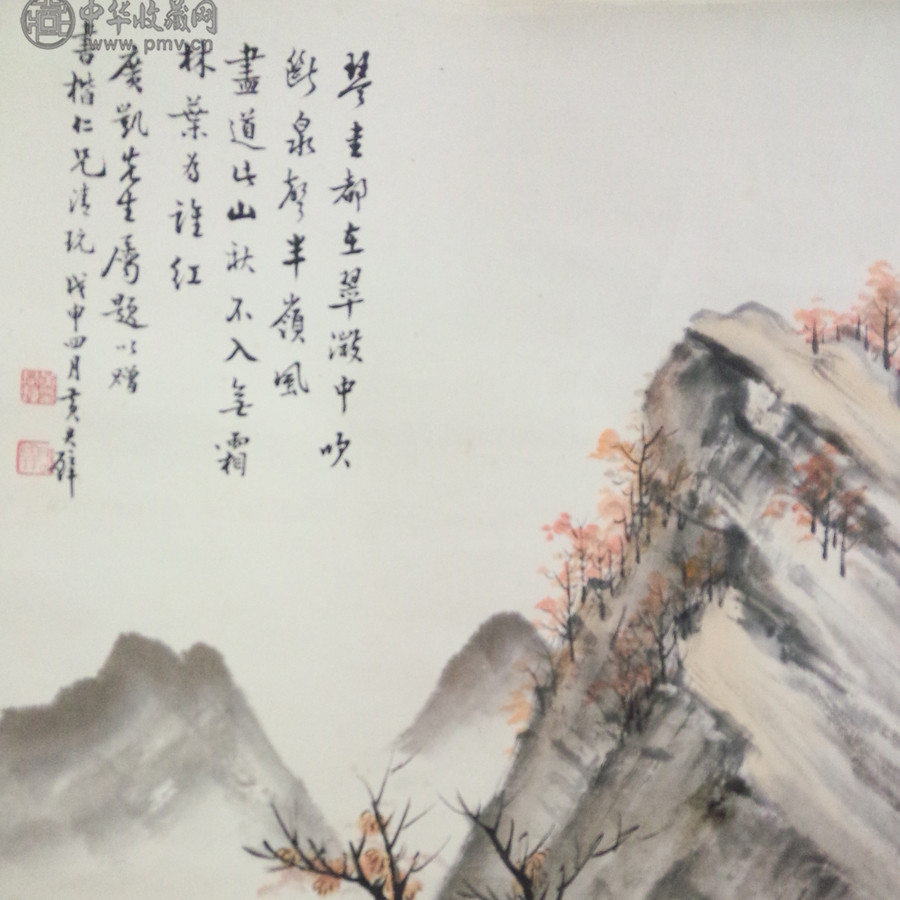 琴書都在翠微中吹
斷泉聲半嶺風
盡道此山秋不入無霜
林葉為誰紅
廣凱先生屬題以贈
書楷仁兄清玩 戊申四月黃君璧
中华收藏网
www.pmv.cn